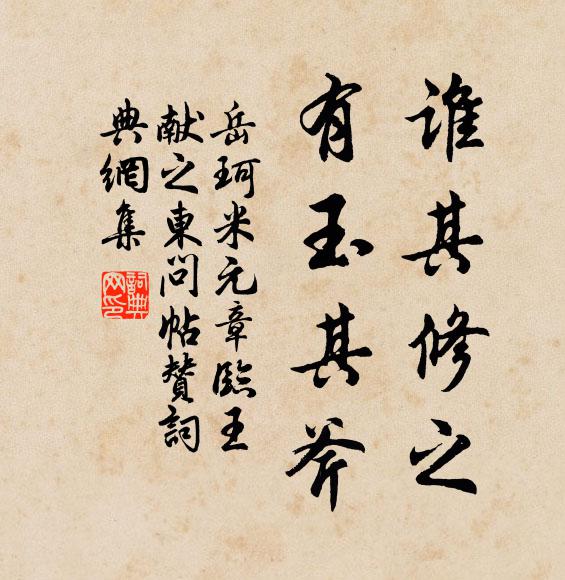 谁其修之
有玉其斧
岳珂米元章臨王
献之東問帖賛詞
典網集
詞典网印